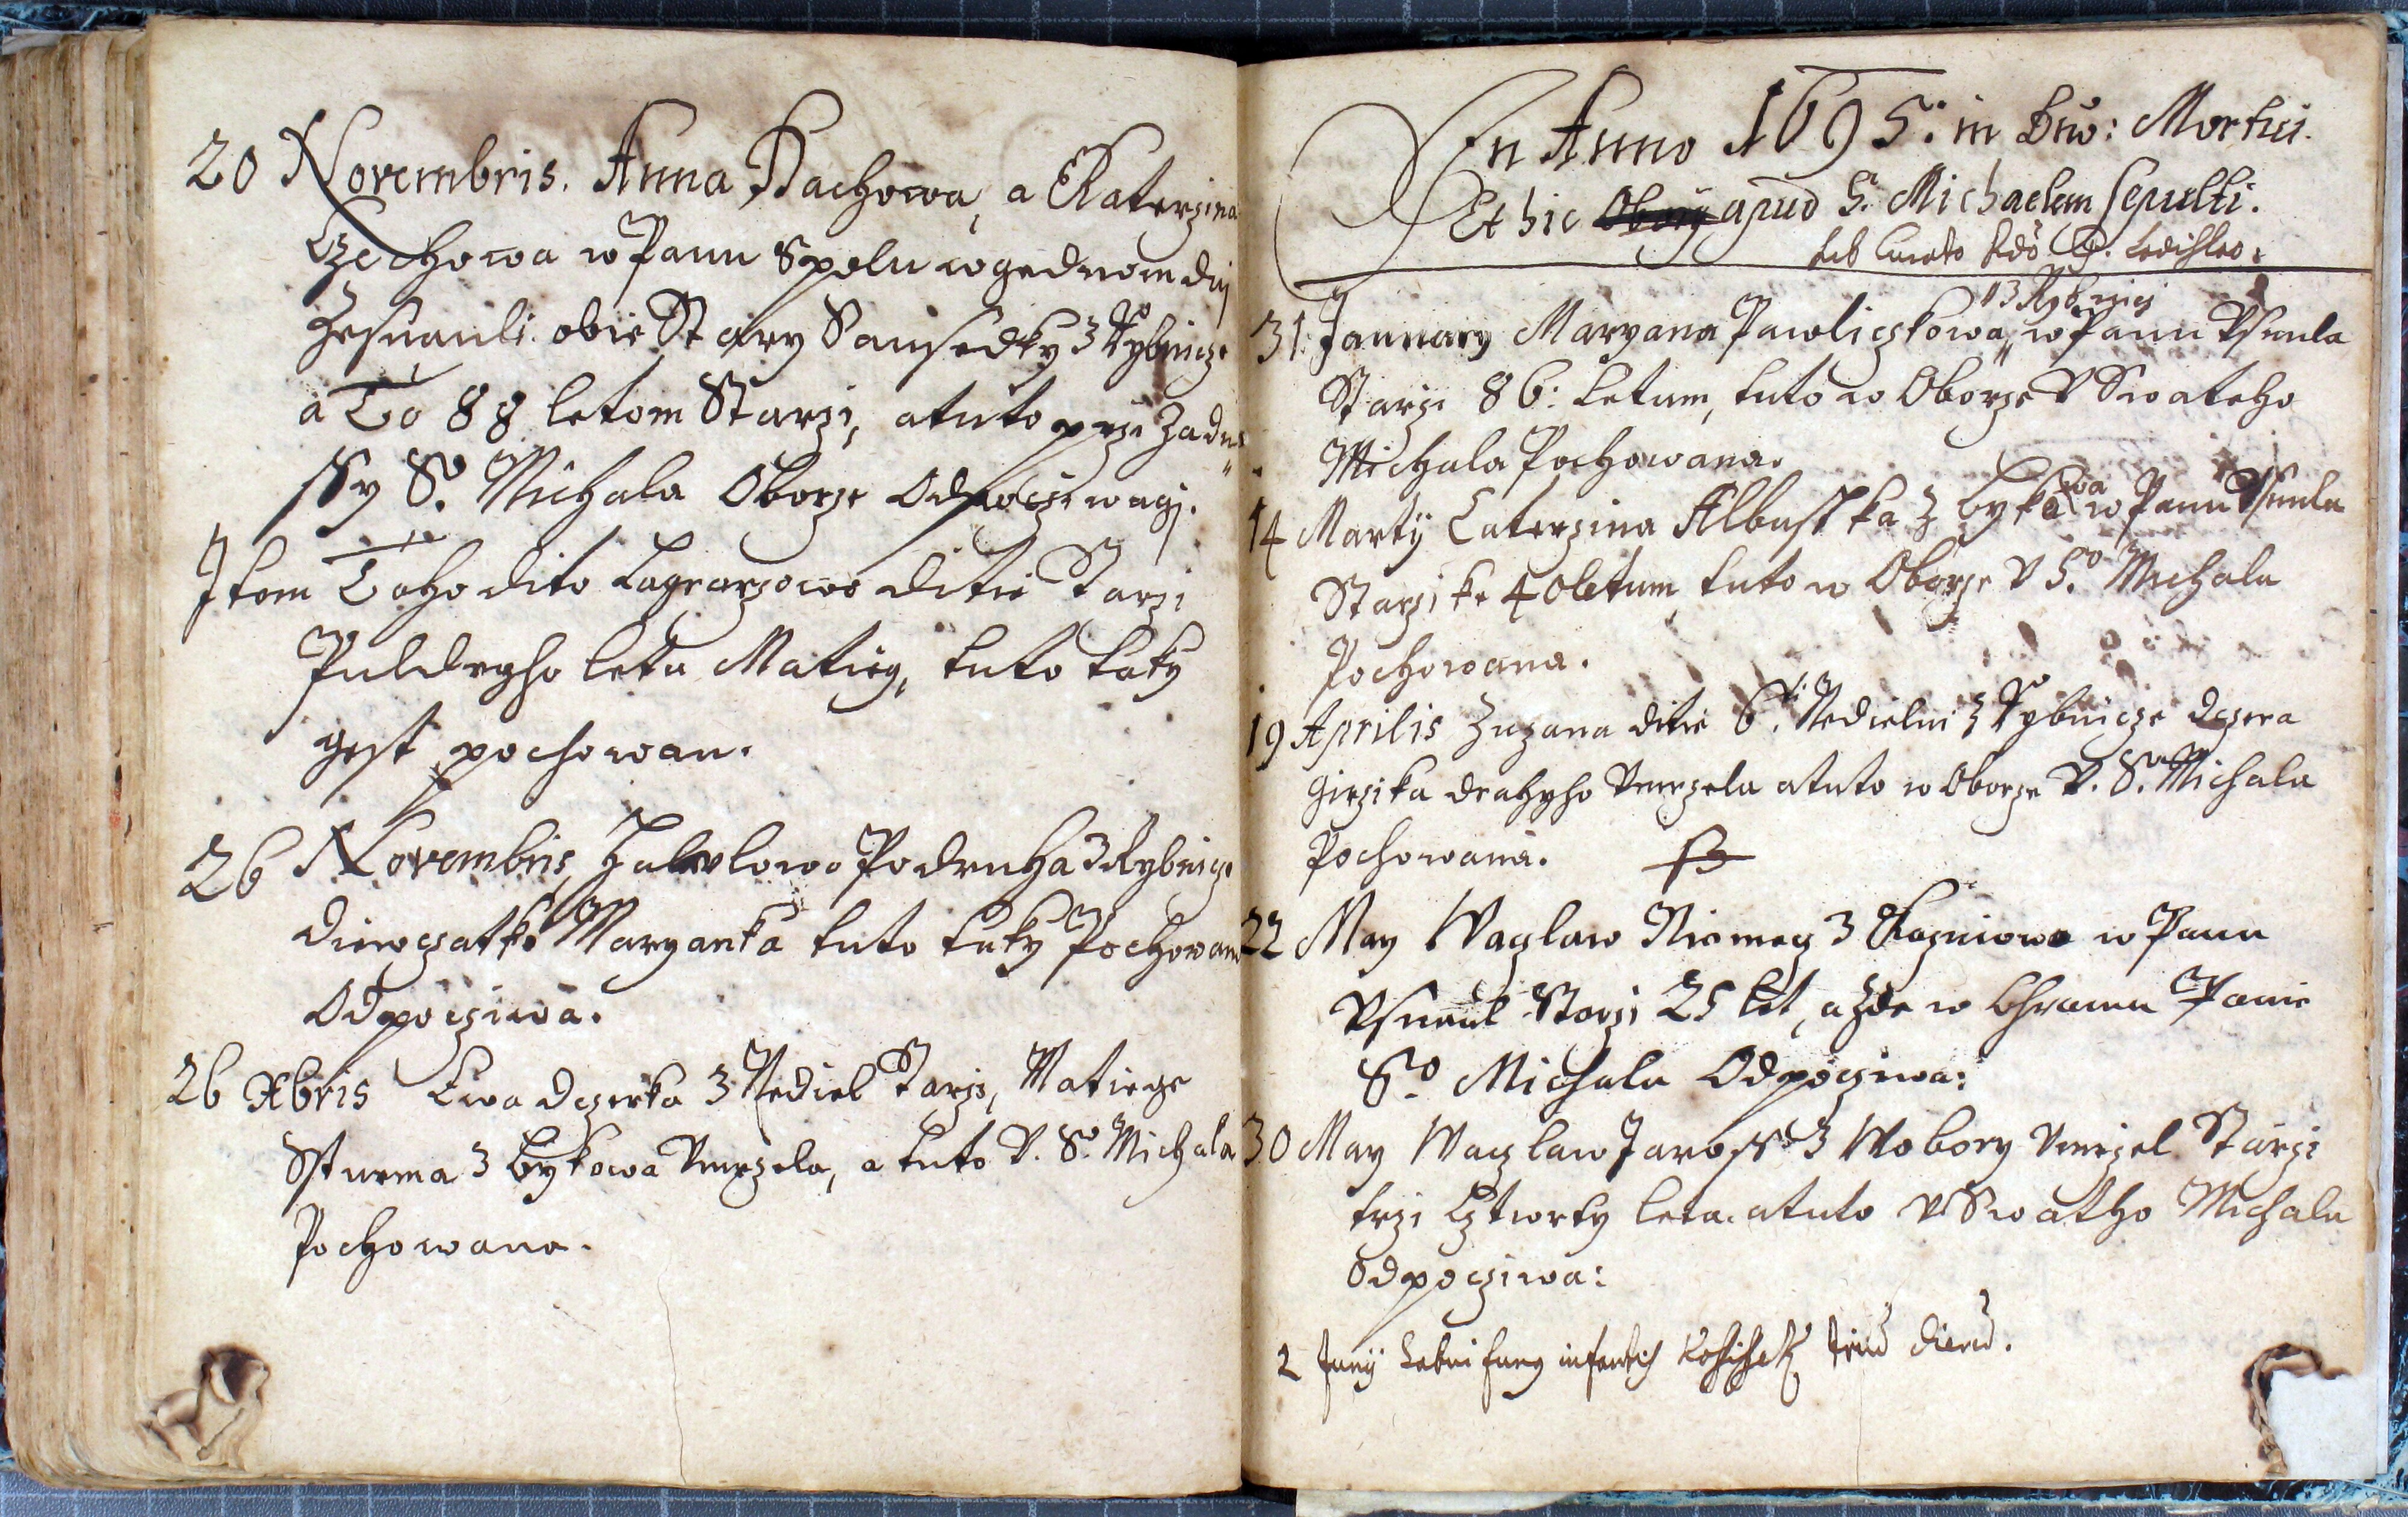 20 Novembris. Anna Bachowa, a Katerzina
Czechowa w Panu Spolu w gednom dni
Zesnuuli. obie Stary Sausedky z Rybnicze
a To 88 letom Starzi, a tuto przi Zadu
ssy So. Michala Oborze Odpocziwagj.
Item Toho dito ditie Starzi
Puldrugho leta Matieg, tuto taky
gest pochowan.
26 Novembris, Podruha z Rybnicze
diewczatko Maryanka tuto taky Pochowana
Odpocziwa.
26 Xbris Ewa dczerka 3 Nediel Starzi, Matiege
Ssturma z Bykowa Umrzela, a tuto V. So. Michala
Pochowana.
In Anno 1695: in Dno: Mortui.
Et hic apud S. Michaelem sepulti.
sub Curato
z Rybnicz
31. January Maryana Pawliczkowa, w Panu Usnula
Starzi 86: letum, tuto w Oborze V Swateho
Michala Pochowana.
14 Martij Caterzina Albustka z Bykowa w Panu Usnula
Starzi ke 40 letum tuto w Oborze V So. Michala
Pochowana.
19 Aprilis Zuzana ditie 6ti Nedielni z Rybnicze dczera
Girzika drahyho Umrzela a tuto w Oborze V. So. Michala
Pochowana.
22 May Waczlaw Niemecz z w Panu
Usnuul Starzi 25 let, a zde w Chramu Panie
So. Michala Odpocziwa:
30 May Waczlaw Jaross z Wobory Umrzel Starzi
trzi Cztwrty leta. a tuto V Swatho Michala
Odpocziwa:
2 Junij infantis triu dieru.